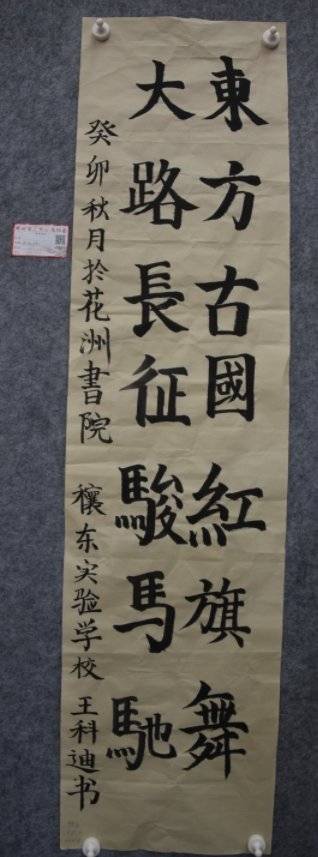 東方古國紅旗舞
大路長征駿馬馳
癸卯秋月於花洲書院 穰东实验学校 王科迪书